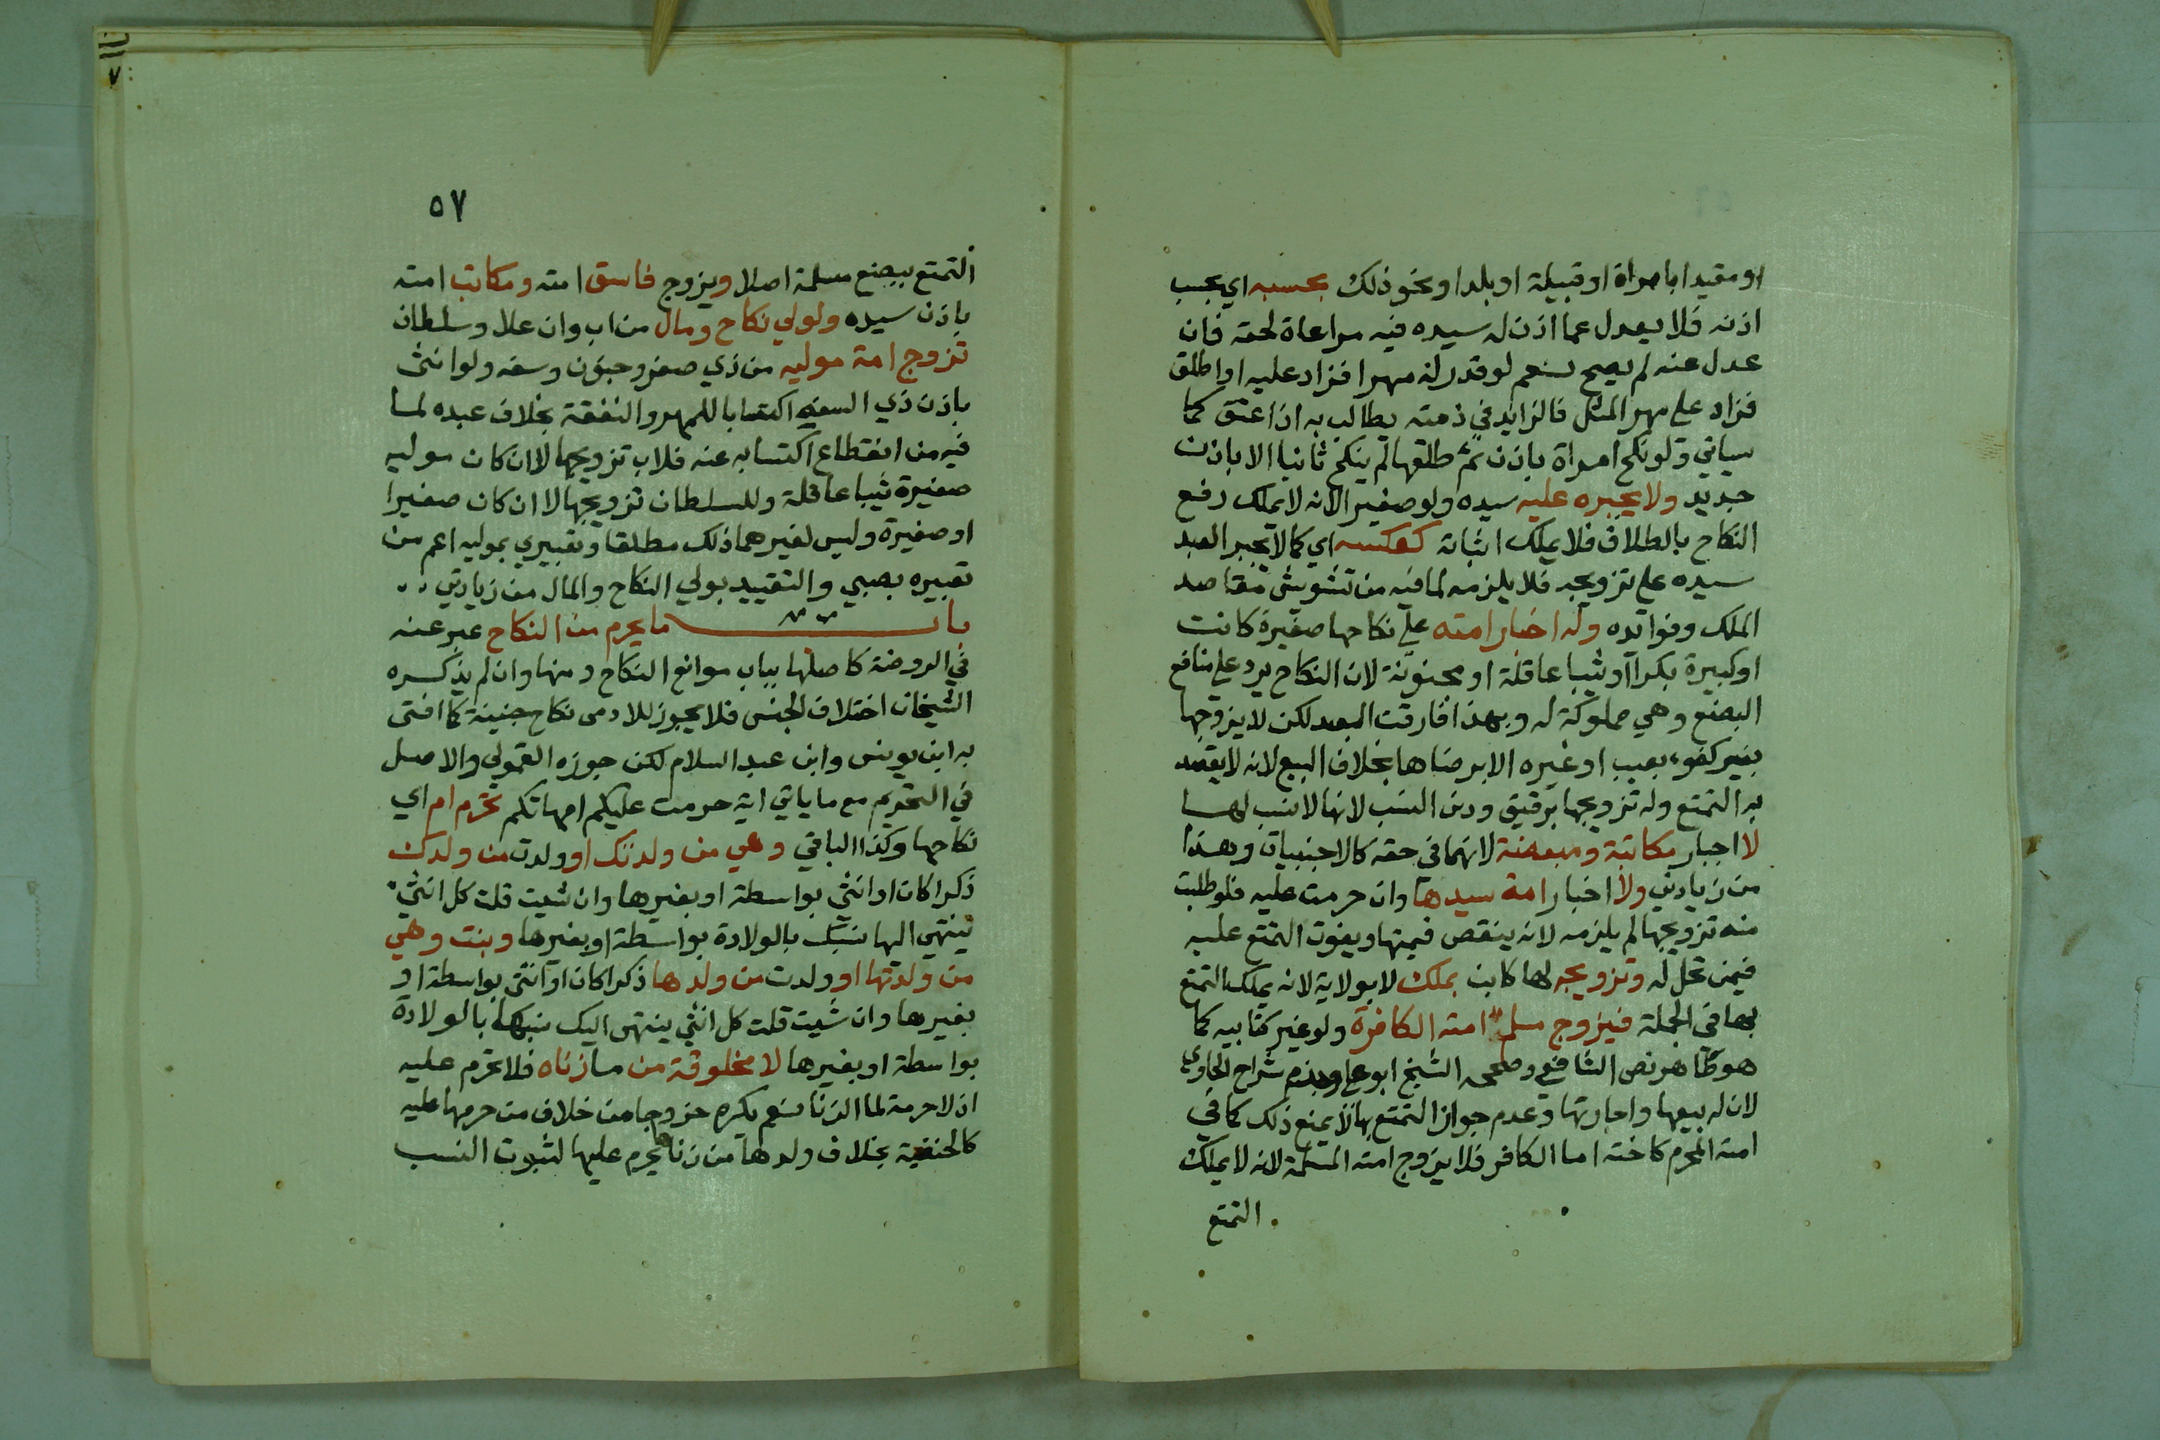 او مقيدا بامراة او قبيلة او بلد او نحو ذلك بحسبه اي بحسب
اذنه فلا يعدل عما اذن له سيده فيه مراعاة لحقه فان
عدل عنه لم يصح نعم لو قدر له مهرا فزاد عليه او اطلق
فزاد على مهر المثل فالزايد في ذمته يطالب به اذا عتق كما
سياتي ولو نكح امراة باذن ثم طلقها لم ينكح ثانيا الا باذن
جديد ولا يجبره عليه سيده ولو صغيرا لانه لا يملك رفع
النكاح بالطلاق فلا يملك اثباته كعكسه اي كما لا يجبر العبد
سيده على تزويجه فلا يلزمه لما فيه من تشويش مقاصد
الملك وفوائده وله اجبار امته على نكاحها صغيرة كانت
او كبيرة بكرا او ثيبا عاقلة او مجنونة لان النكاح يرد على منافع
البضع وهي مملوكة له وبهذا فارقت العبد لكن لا يزوجها
بغير كفوء بعيب او غيره الا برضاها بخلاف البيع لانه لا يقصد
به التمتع وله تزويجها برقيق ودني النسب لانها لا نسب لها
لا اجبار مكاتبة ومبعضة لانهما في حقه كالاجنبيات وهذا
من زيادتي ولا اجبار امة سيدها وان حرمت عليه فلو طلبت
منه تزويجها لم يلزمه لانه ينقص قيمتها ويفوت التمتع عليه
فيمن تحل له وتزويجه لها كاين بملك لا بولاية لانه يملك التمتع
بها في الجملة فيزوج مسلم امته الكافرة ولو غير كتابيه كما
هو ظاهر نص الشافعي وصححه الشيخ ابو علي وجزم به شراح الحاوي
لان له بيعها واجارتها وعدم جواز التمتع بها لا يمنع ذلك كما في
امته المحرم كاخته اما الكافر فلا يزوج امته المسلمة لانه لا يملك
التمتع
٥٧
التمتع ببضع مسلمة اصلا ويزوج فاسق امته ومكاتب امته
باذن سيده ولولي نكاح ومال من اب وان علا وسلطان
تزوج امة موليه من ذي صغر وجنون وسفه ولو انثى
باذن ذي السفه اكتسابا للمهر والنفقة بخلاف عبده لما
فيه من انقطاع اكتسابه عنه فلاب تزويجها الا ان كان موليه
صغيرة ثيبا عاقلة وللسلطان تزويجها الا ان كان صغيرا
او صغيرة وليس لغيرهما ذلك مطلقا وتعبيري بموليه اعم من
تعبيره بصبي والتقييد بولي النكاح والمال من زيادتي
باب ما يحرم من النكاح عبر عنه
في الروضة كاصلها بباب موانع النكاح ومنها وان لم يذكره
الشيخان اختلاف الجنس فلا يجوز للادمى نكاح جنية كما افتى
به ابن يونس وابن عبد السلام لكن جوزه القمولي والاصل
في التحريم مع ما ياتي اية حرمت عليكم امهاتكم تحرم ام اي
نكاحها وكذا الباقي وهي من ولدتك او ولدت من ولدك
ذكرا كان او انثى بواسطة او بغيرها وان شيت قلت كل انثى
ينتهي اليها نسبك بالولادة بواسطة او بغيرها وبنت وهي
من ولدتها او ولدت من ولدها ذكرا كان او انثى بواسطة او
بغيرها وان شيت قلت كل انثي ينتهى اليك نسبها بالولادة
بواسطة او بغيرها لا مخلوقة من ماء زناه فلا تحرم عليه
اذ لا حرمة لماء الزنا نعم يكره خروجا من خلاف من حرمها عليه
كالحنفية بخلاف ولدها من زناها يحرم عليها لثبوت النسب